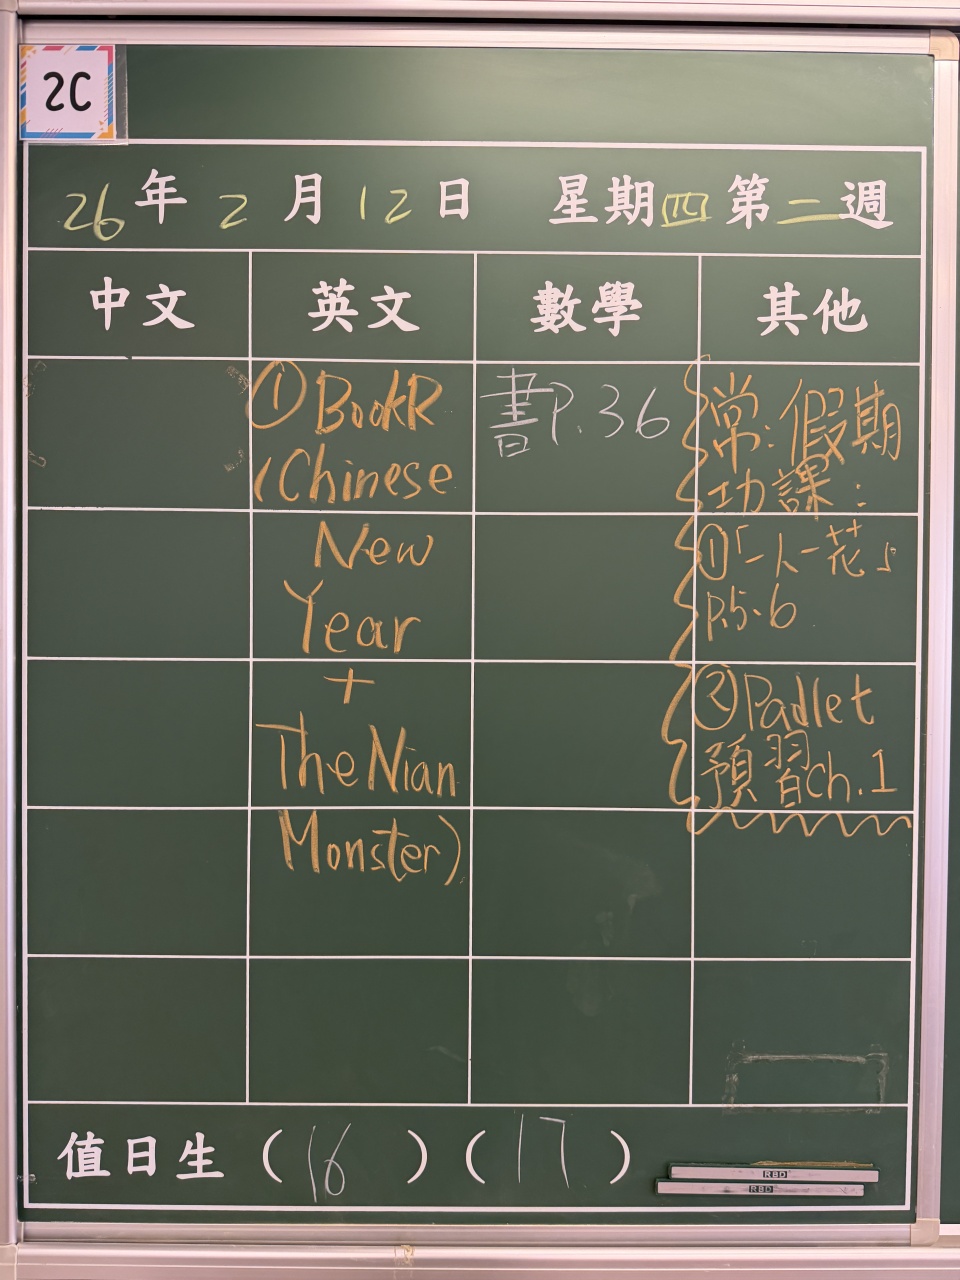 2C
26年2月12日 星期四第二週
中文 英文 數學 其他
①BookR
(Chinese
New
Year
+
The Nian
Monster)
書P.36
常:假期
功課:
①「一人一花」
P.5-6
②Padlet
預習ch.1
值日生(16)(17)
RBD
RBD